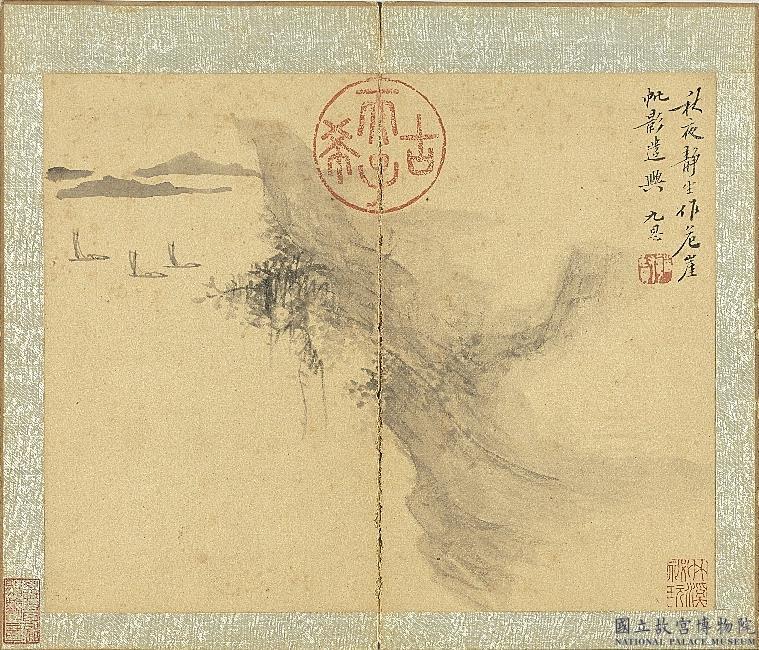 秋夜靜坐作危崖
帆影遣興 九思
古希天子
國立故宮博物院
NATIONAL PALACE MUSEUM